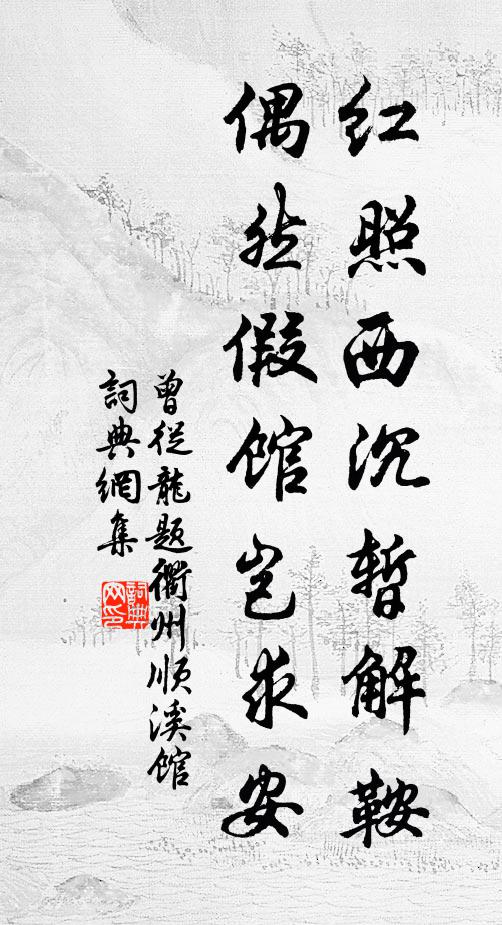 红照西沉暂解鞍
偶然假馆岂求安
曾從龍題衢州順溪馆
詞典網集
詞典网印